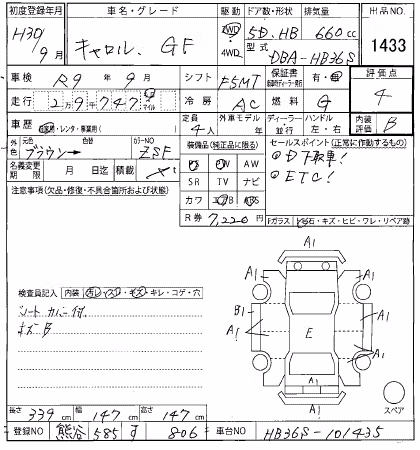 初度登録年月 車名・グレード 駆動 ドア数・形状 排気量 出品NO.
H30/9月 キャロル. GF 2WD 4WD 5D. HB 660cc 1433
型式 DBA-HB36S
車検 R9年9月 シフト F5MT 保証書 有・無 評価点 4
走行 2万9千747 マイル 冷房 AC 燃料 G
車歴 自家用・レンタ・事業用( ) 定員 4人 外車モデル 年 ディーラー 並行 ハンドル 左・右 内装評価 B
外色 元色 ブラウン→ 色替 カラーNO ZSF 装備品(純正品に限る) セールスポイント(正常に作動するもの)
名義変更期限 月 日迄 積載 PS PW AW ①D下取車!
SR TV ナビ ②ETC!
注意事項(欠品・修復・不具合箇所および状態) カワ エアB ABS
R券 7,220円 Fガラス 飛石・キズ・ヒビ・ワレ・リペア跡
検査員記入 内装 汚レ・スレ・キズ・キレ・コゲ・穴
シートカバー付.
キズB
A1
A1 A1
B1 A1
A1 E A1
A1 A1
A1
スペア
長さ 339cm 幅 147cm 高さ 147cm
登録NO 熊谷 585 す 806 車台NO HB36S-101435